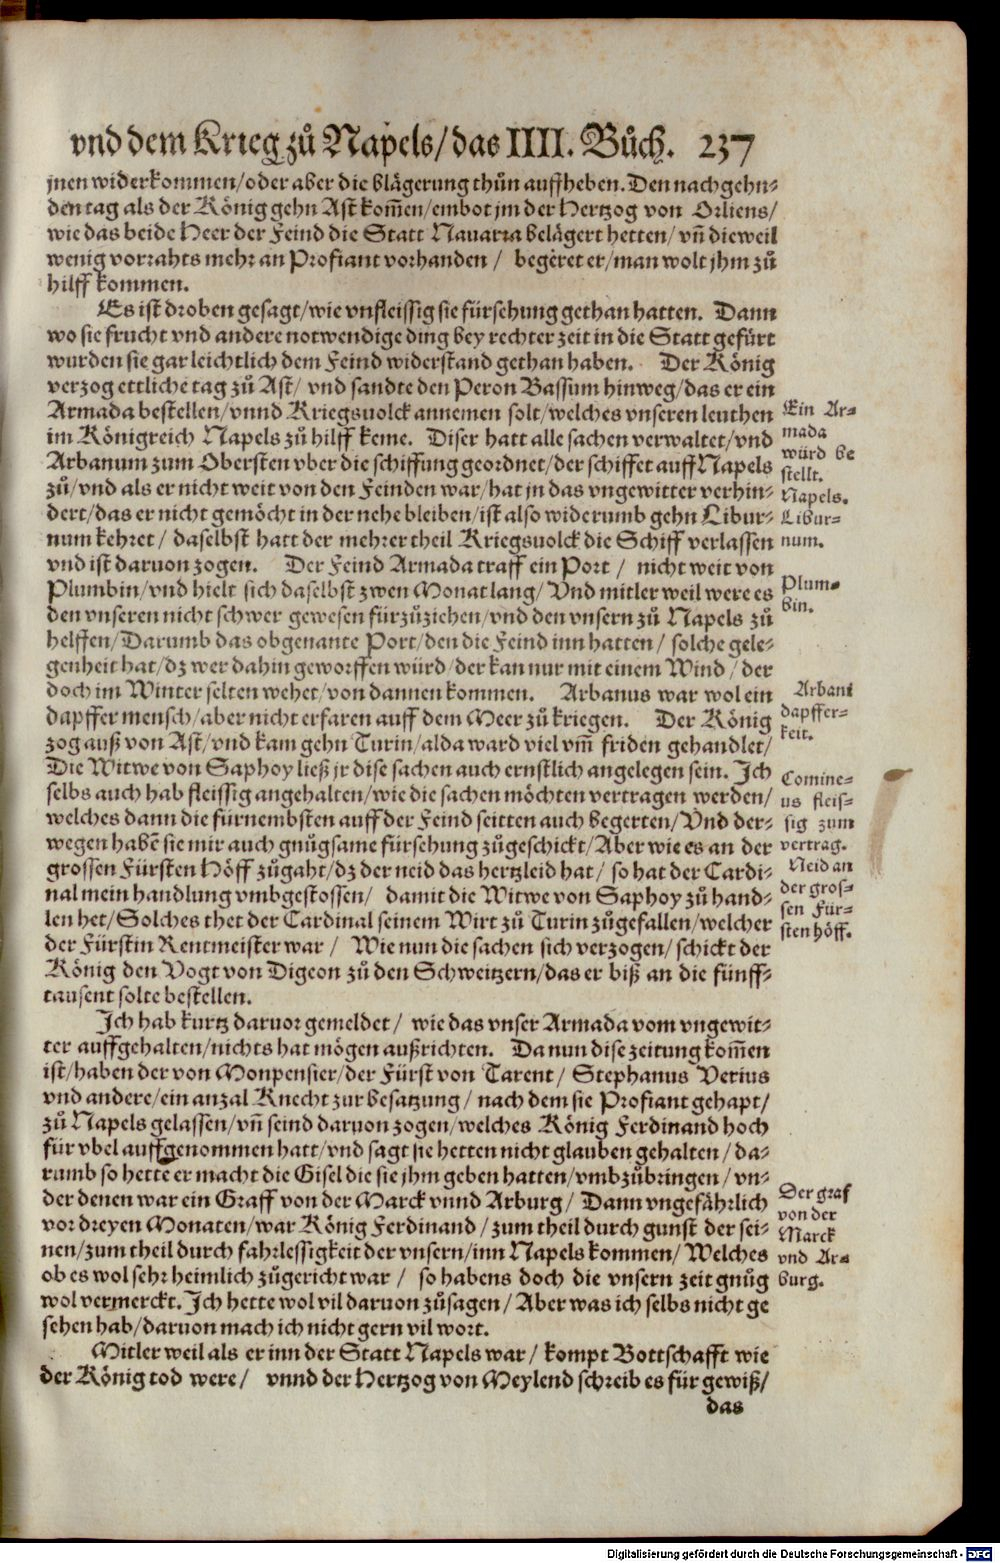 vnd dem Krieg zů Napels/das IIII. Bůch. 237
jnen widerkommen/oder aber die blägerung thůn auffheben. Den nachgehn⸗
den tag als der König gehn Ast kom̃en/embot jm der Hertzog von Orliens/
wie das beide Heer der Feind die Statt Nauarra belägert hetten/vñ dieweil
wenig vorrahts mehr an Profiant vorhanden / begeret er/man wolt jhm zů
hilff kommen.
Es ist droben gesagt/wie vnfleissig sie fürsehung gethan hatten. Dann
wo sie frucht vnd andere notwendige ding bey rechter zeit in die Statt gefürt
wurden sie gar leichtlich dem Feind widerstand gethan haben. Der König
verzog ettliche tag zů Ast/ vnd sandte den Peron Bassum hinweg/das er ein
Armada bestellen/vnnd Kriegsuolck annemen solt/welches vnseren leuthen
im Königreich Napels zů hilff keme. Diser hatt alle sachen verwaltet/vnd
Arbanum zum Obersten vber die schiffung geordnet/der schiffet auff Napels
zů/vnd als er nicht weit von den Feinden war/hat jn das vngewitter verhin⸗
dert/das er nicht gemöcht in der nehe bleiben/ist also widerumb gehn Libur⸗
num kehret/ daselbst hatt der mehrer theil Kriegsuolck die Schiff verlassen
vnd ist daruon zogen. Der Feind Armada traff ein Port / nicht weit von
Plumbin/vnd hielt sich daselbst zwen Monat lang/ Vnd mitler weil were es
den vnseren nicht schwer gewesen fürzůziehen/vnd den vnsern zů Napels zů
helffen/Darumb das obgenante Port/den die Feind inn hatten/ solche gele⸗
genheit hat/dz wer dahin geworffen würd/der kan nur mit einem Wind / der
doch im Winter selten wehet/von dannen kommen. Arbanus war wol ein
dapffer mensch/aber nicht erfaren auff dem Meer zů kriegen. Der König
zog auß von Ast/vnd kam gehn Turin/alda ward viel vm̃ friden gehandlet/
Die Witwe von Saphoy ließ jr dise sachen auch ernstlich angelegen sein. Ich
selbs auch hab fleissig angehalten/wie die sachen möchten vertragen werden/
welches dann die fürnembsten auff der Feind seitten auch begerten/Vnd der⸗
wegen habẽ sie mir auch gnůgsame fürsehung zůgeschickt/Aber wie es an der
grossen Fürsten Höff zůgaht/dz der neid das hertzleid hat/ so hat der Cardi⸗
nal mein handlung vmbgestossen/ damit die Witwe von Saphoy zů hand⸗
len het/Solches thet der Cardinal seinem Wirt zů Turin zůgefallen/welcher
der Fürstin Rentmeister war / Wie nun die sachen sich verzogen/schickt der
König den Vogt von Digeon zů den Schweitzern/das er biß an die fünff⸗
tausent solte bestellen.
Ich hab kurtz daruor gemeldet/ wie das vnser Armada vom vngewit⸗
ter auffgehalten/nichts hat mögen außrichten. Da nun dise zeitung kom̃en
ist/haben der von Monpensier/der Fürst von Tarent/ Stephanus Verius
vnd andere/ein anzal Knecht zur besatzung/ nach dem sie Profiant gehapt/
zů Napels gelassen/vñ seind daruon zogen/welches König Ferdinand hoch
für vbel auffgenommen hatt/vnd sagt sie hetten nicht glauben gehalten / da⸗
rumb so hette er macht die Gisel die sie jhm geben hatten/vmbzůbringen/ vn⸗
der denen war ein Graff von der Marck vnnd Arburg/ Dann vngefährlich
vor dreyen Monaten/war König Ferdinand / zum theil durch gunst der sei⸗
nen/zum theil durch fahrlessigkeit der vnsern/inn Napels kommen/ Welches
ob es wol sehr heimlich zůgericht war / so habens doch die vnsern zeit gnůg
wol vermerckt. Ich hette wol vil daruon zůsagen/ Aber was ich selbs nicht ge
sehen hab/daruon mach ich nicht gern vil wort.
Mitler weil als er inn der Statt Napels war/ kompt Bottschafft wie
der König tod were/ vnnd der Hertzog von Meylend schreib es für gewiß/
das
Ein Ar⸗
mada
würd be
stellt.
Napels.
Libur⸗
num.
Plum⸗
bin.
Arbani
dapffer⸗
keit.
Comine⸗
us fleis⸗
sig zum
vertrag.
Neid an
der gros⸗
sen Für⸗
sten höff.
Der graf
von der
Marck
vnd Ar⸗
burg.
Digitalisierung gefördert durch die Deutsche Forschungsgemeinschaft - DFG